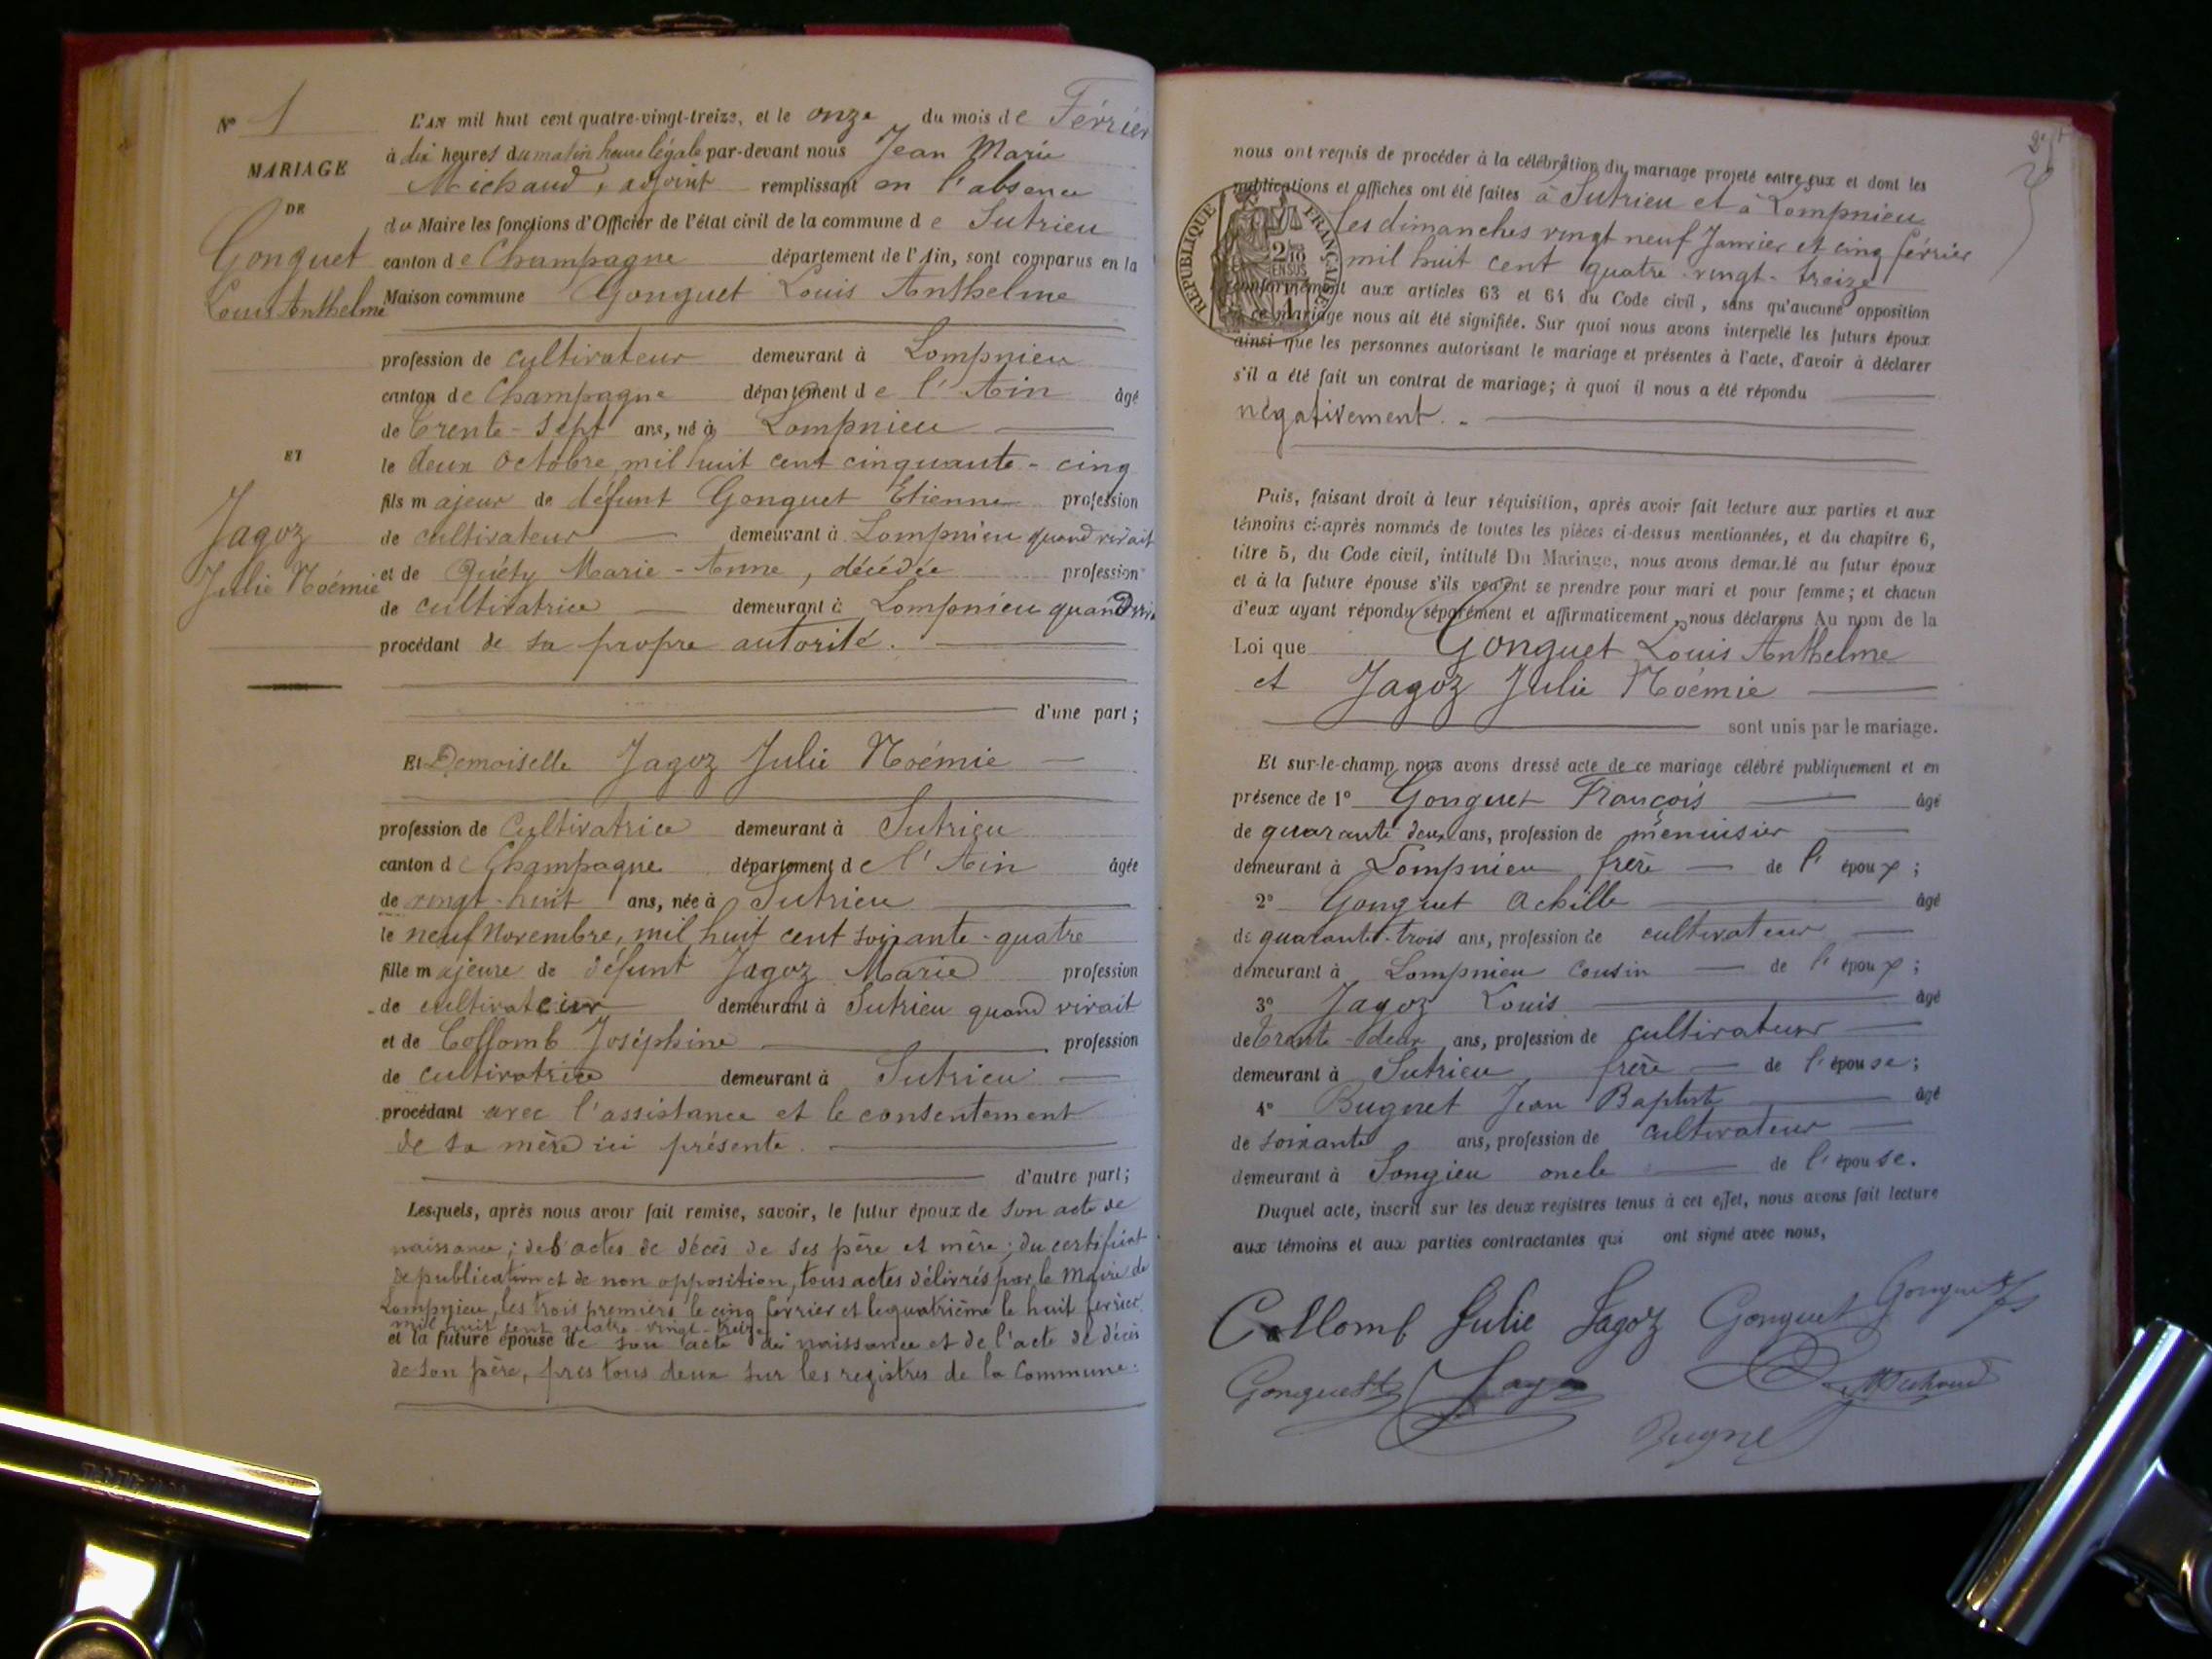 N° 1
MARIAGE
DE
Gonguet
Louis Anthelme
ET
Jagoz
Julie Noémie
L'AN mil huit cent quatre-vingt-treize, et le onze du mois de Février
à dix heures du matin heure légale par-devant nous Jean Marie
Michaud, adjoint remplissant en l'absence
du Maire les fonctions d'Officier de l'état civil de la commune de Sutrieu
canton de Champagne département de l'Ain, sont comparus en la
Maison commune Gonguet Louis Anthelme
profession de cultivateur demeurant à Lompnieu
canton de Champagne département de l'Ain âgé
de Trente-Sept ans, né à Lompnieu
le deux Octobre, mil huit cent cinquante-cinq
fils majeur de défunt Gonguet Etienne profession
de cultivateur demeurant à Lompnieu quand vivait
et de Quéty Marie-Anne, décédée profession
de cultivatrice demeurant à Lompnieu quand
procédant de sa propre autorité.
d'une part;
Et Demoiselle Jagoz Julie Noémie
profession de Cultivatrice demeurant à Sutrieu
canton de Champagne département de l'Ain âgée
de vingt-huit ans, née à Sutrieu
le neuf Novembre, mil huit cent soixante-quatre
fille majeure de défunt Jagoz Marie profession
de cultivateur demeurant à Sutrieu quand vivait
et de Collomb Joséphine profession
de cultivatrice demeurant à Sutrieu
procédant avec l'assistance et le consentement
de sa mère ici présente.
d'autre part;
Lesquels, après nous avoir fait remise, savoir, le futur époux de son acte de
naissance; des actes de décès de ses père et mère; du certificat
de publication et de non opposition, tous actes délivrés par le Maire de
Lompnieu, les trois premiers le cinq février et le quatrième le huit février
mil huit cent quatre-vingt-treize
et la future épouse de son acte de naissance et de l'acte de décès
de son père, pris tous deux sur les registres de la Commune.
nous ont requis de procéder à la célébration du mariage projeté entre eux et dont les
publications et affiches ont été faites à Sutrieu et à Lompnieu
les dimanches vingt neuf Janvier et cinq février
mil huit cent quatre-vingt-treize
RÉPUBLIQUE FRANÇAISE
2/10 EN SUS
conformément aux articles 63 et 64 du Code civil, sans qu'aucune opposition
à ce mariage nous ait été signifiée. Sur quoi nous avons interpellé les futurs époux
ainsi que les personnes autorisant le mariage et présentes à l'acte, d'avoir à déclarer
s'il a été fait un contrat de mariage; à quoi il nous a été répondu
négativement.
Puis, faisant droit à leur réquisition, après avoir fait lecture aux parties et aux
témoins ci-après nommés de toutes les pièces ci-dessus mentionnées, et du chapitre 6,
titre 5, du Code civil, intitulé Du Mariage, nous avons demandé au futur époux
et à la future épouse s'ils veulent se prendre pour mari et pour femme; et chacun
d'eux ayant répondu séparément et affirmativement, nous déclarons Au nom de la
Loi que Gonguet Louis Anthelme
et Jagoz Julie Noémie
sont unis par le mariage.
Et sur-le-champ nous avons dressé acte de ce mariage célébré publiquement et en
présence de 1° Gonguet François âgé
de quarante deux ans, profession de menuisier
demeurant à Lompnieu frère de l'époux;
2° Gonguet Achille âgé
de quarante-trois ans, profession de cultivateur
demeurant à Lompnieu cousin de l'époux;
3° Jagoz Louis âgé
de Trente-deux ans, profession de cultivateur
demeurant à Sutrieu frère de l'épouse;
4° Bugnet Jean Baptiste âgé
de soixante ans, profession de cultivateur
demeurant à Songieu oncle de l'épouse.
Duquel acte, inscrit sur les deux registres tenus à cet effet, nous avons fait lecture
aux témoins et aux parties contractantes qui ont signé avec nous,
Collomb Julie Jagoz Gonguet Gonguet
Gonguet Jagoz Michaud
Bugnet